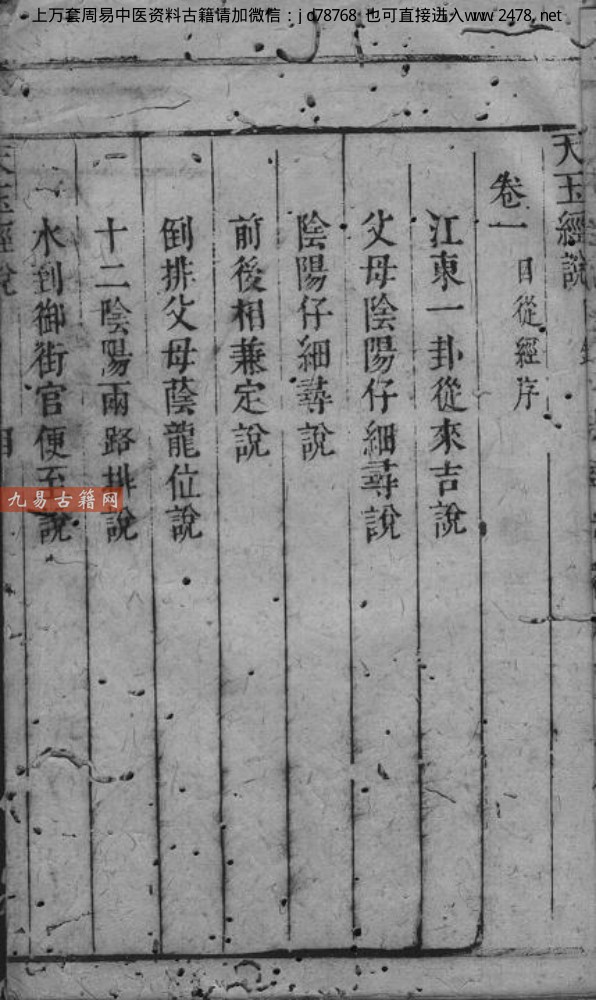 上万套周易中医资料古籍请加微信：jd78768 也可直接进入www.2478.net
天玉經說
卷一 目從經序
江東一卦從來吉說
父母陰陽仔細尋說
陰陽仔細尋說
前後相兼定說
倒排父母蔭龍位說
十二陰陽兩路排說
水到御街官便至說
天玉經說
目
九易古籍网